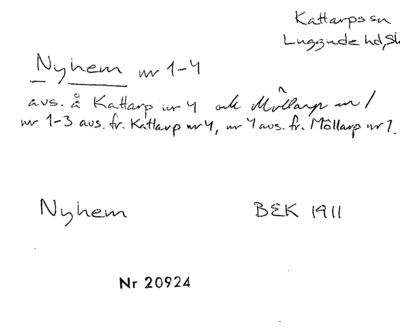 Kattarps sn
Luggude hd, Sk
Nyhem nr 1-4
avs. å Kattarp nr 4 och Möllarp nr 1
nr 1-3 avs. fr. Kattarp nr 4, nr 4 avs. fr. Möllarp nr 1.
Nyhem BEK 1911
Nr 20924